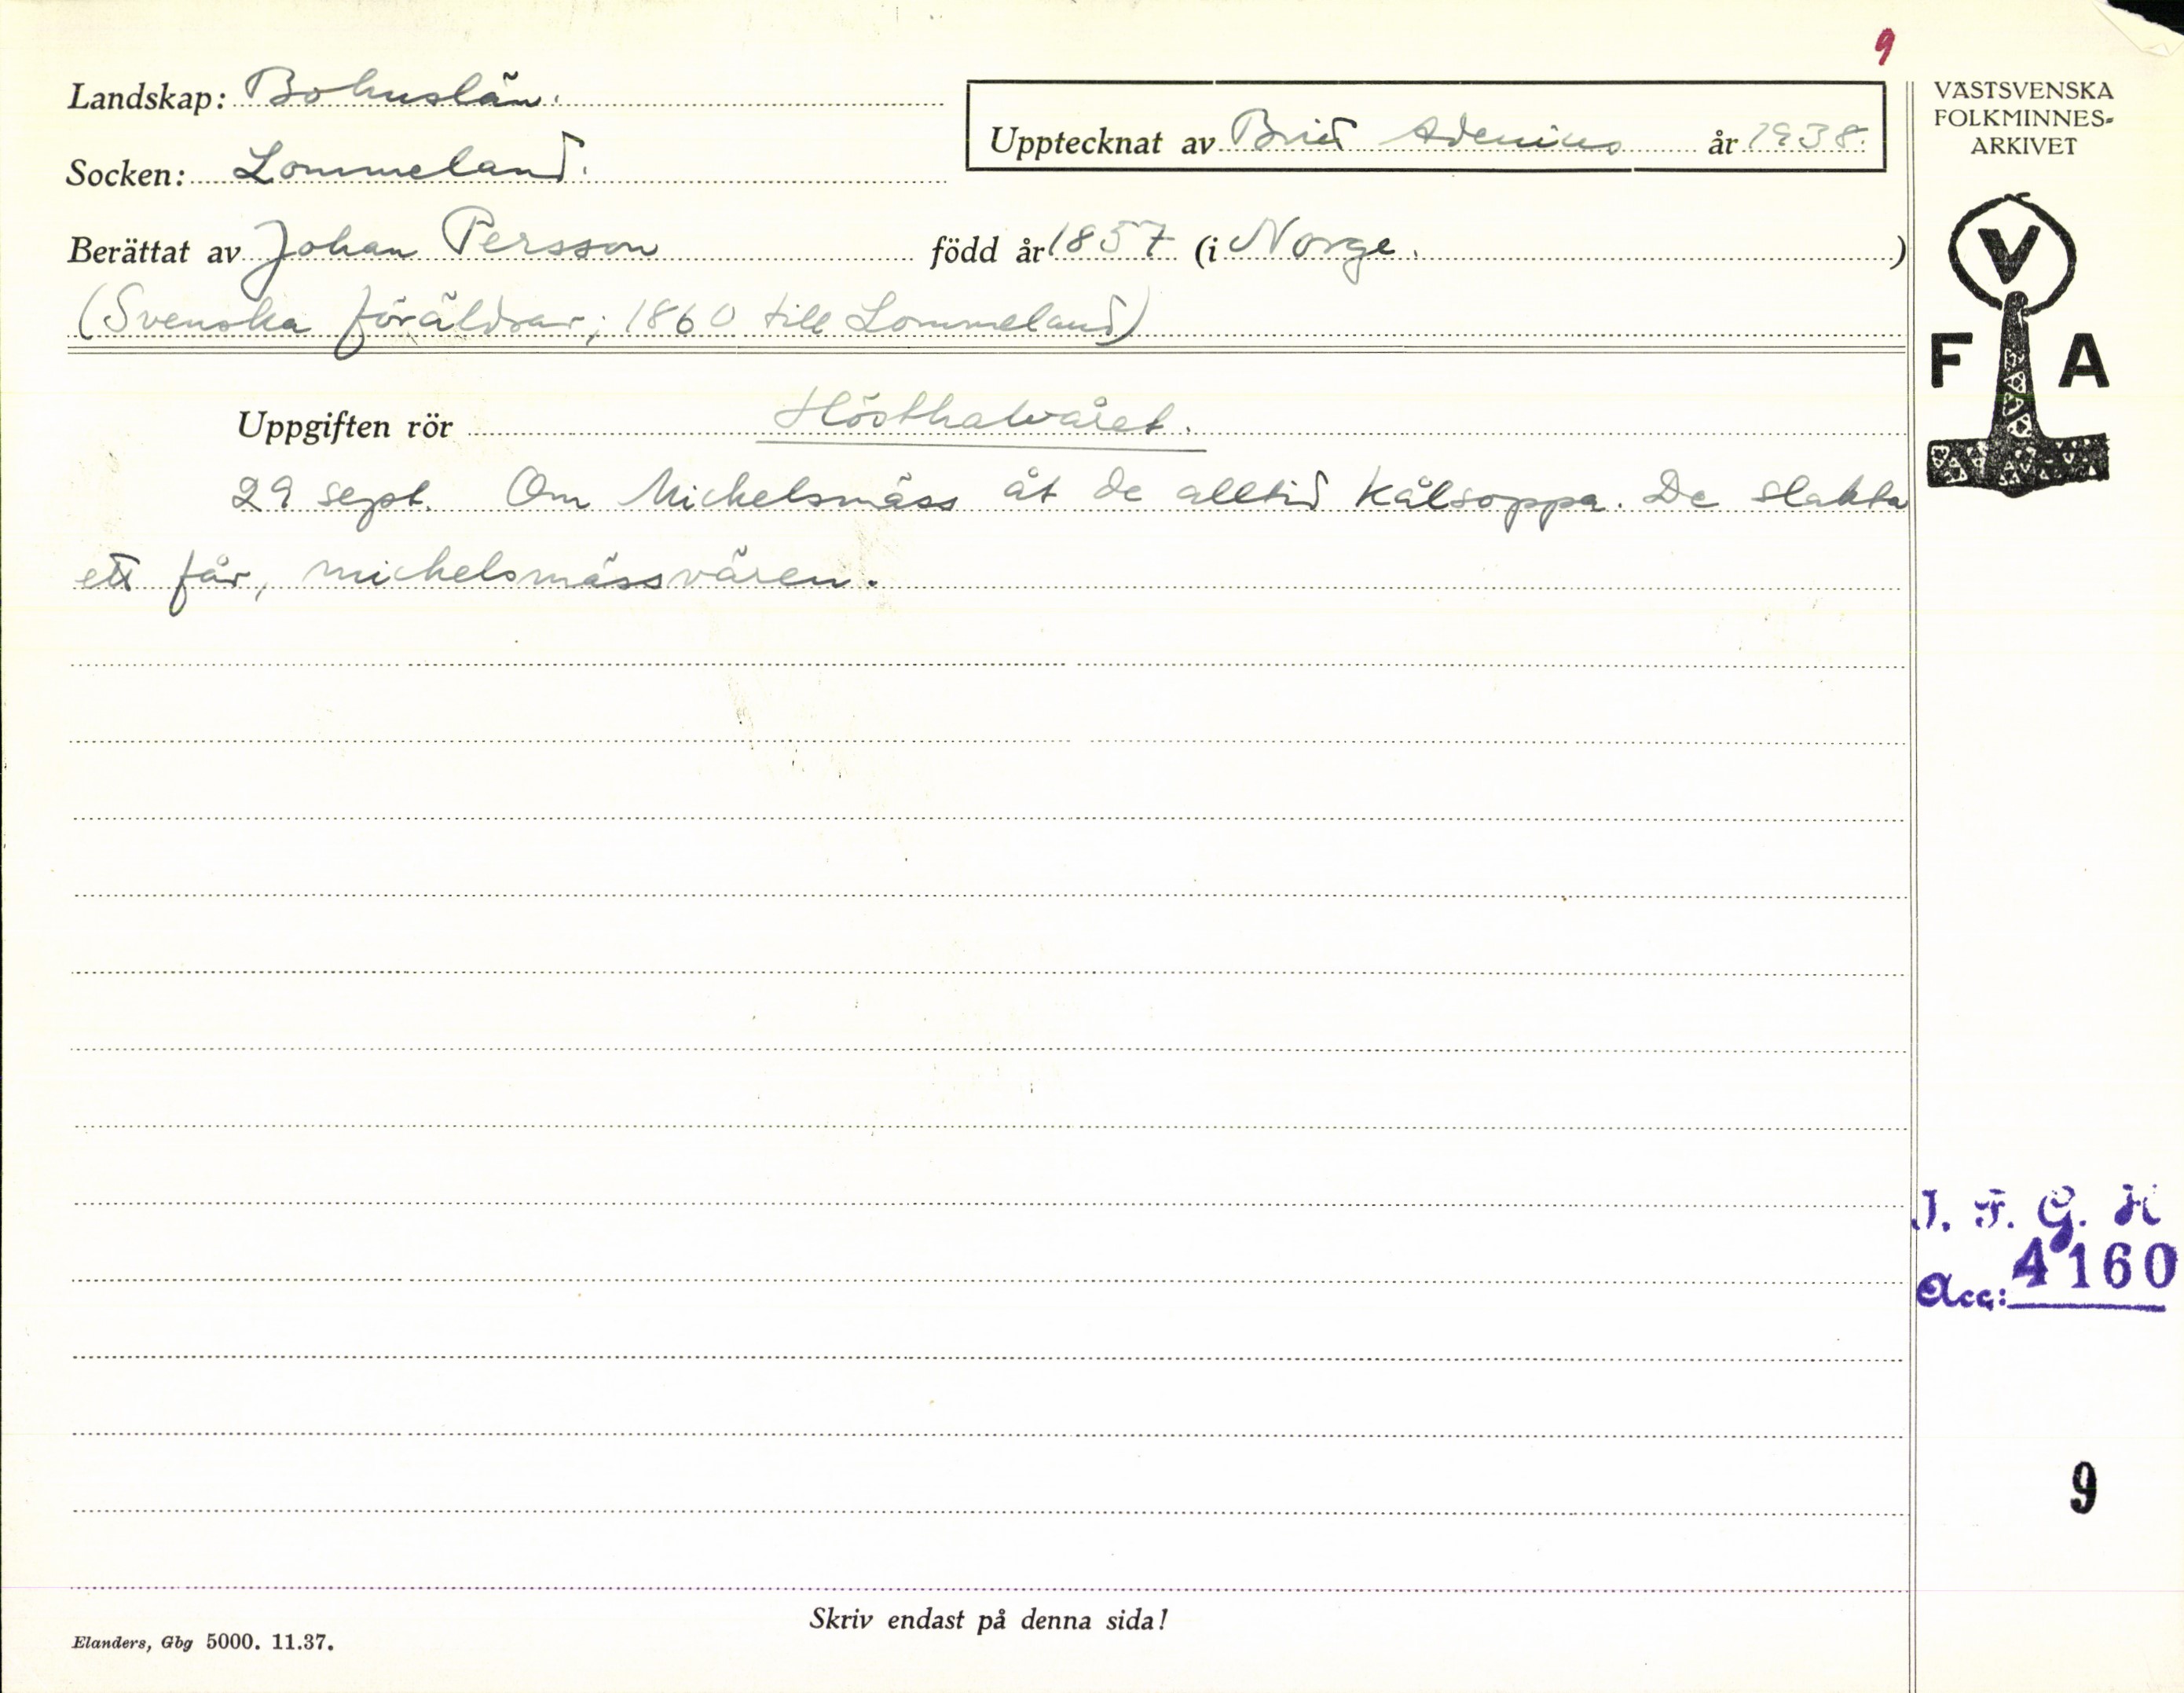 9
Landskap: Bohuslän.
Socken: Lommeland.
Upptecknat av Brid Adenius år 1938.
Berättat av Johan Persson född år 1857 (i Norge.)
(Svenska föräldrar; 1860 till Lommeland)
VÄSTSVENSKA
FOLKMINNES-
ARKIVET
V
F A
Uppgiften rör Hösthalvåret.
29 sept. Om Mickelsmäss åt de alltid kålsoppa. De slakta
ett får, mickelsmässvären.
I. F. G. H
Acc: 4160
9
Skriv endast på denna sida!
Elanders, Gbg 5000. 11.37.